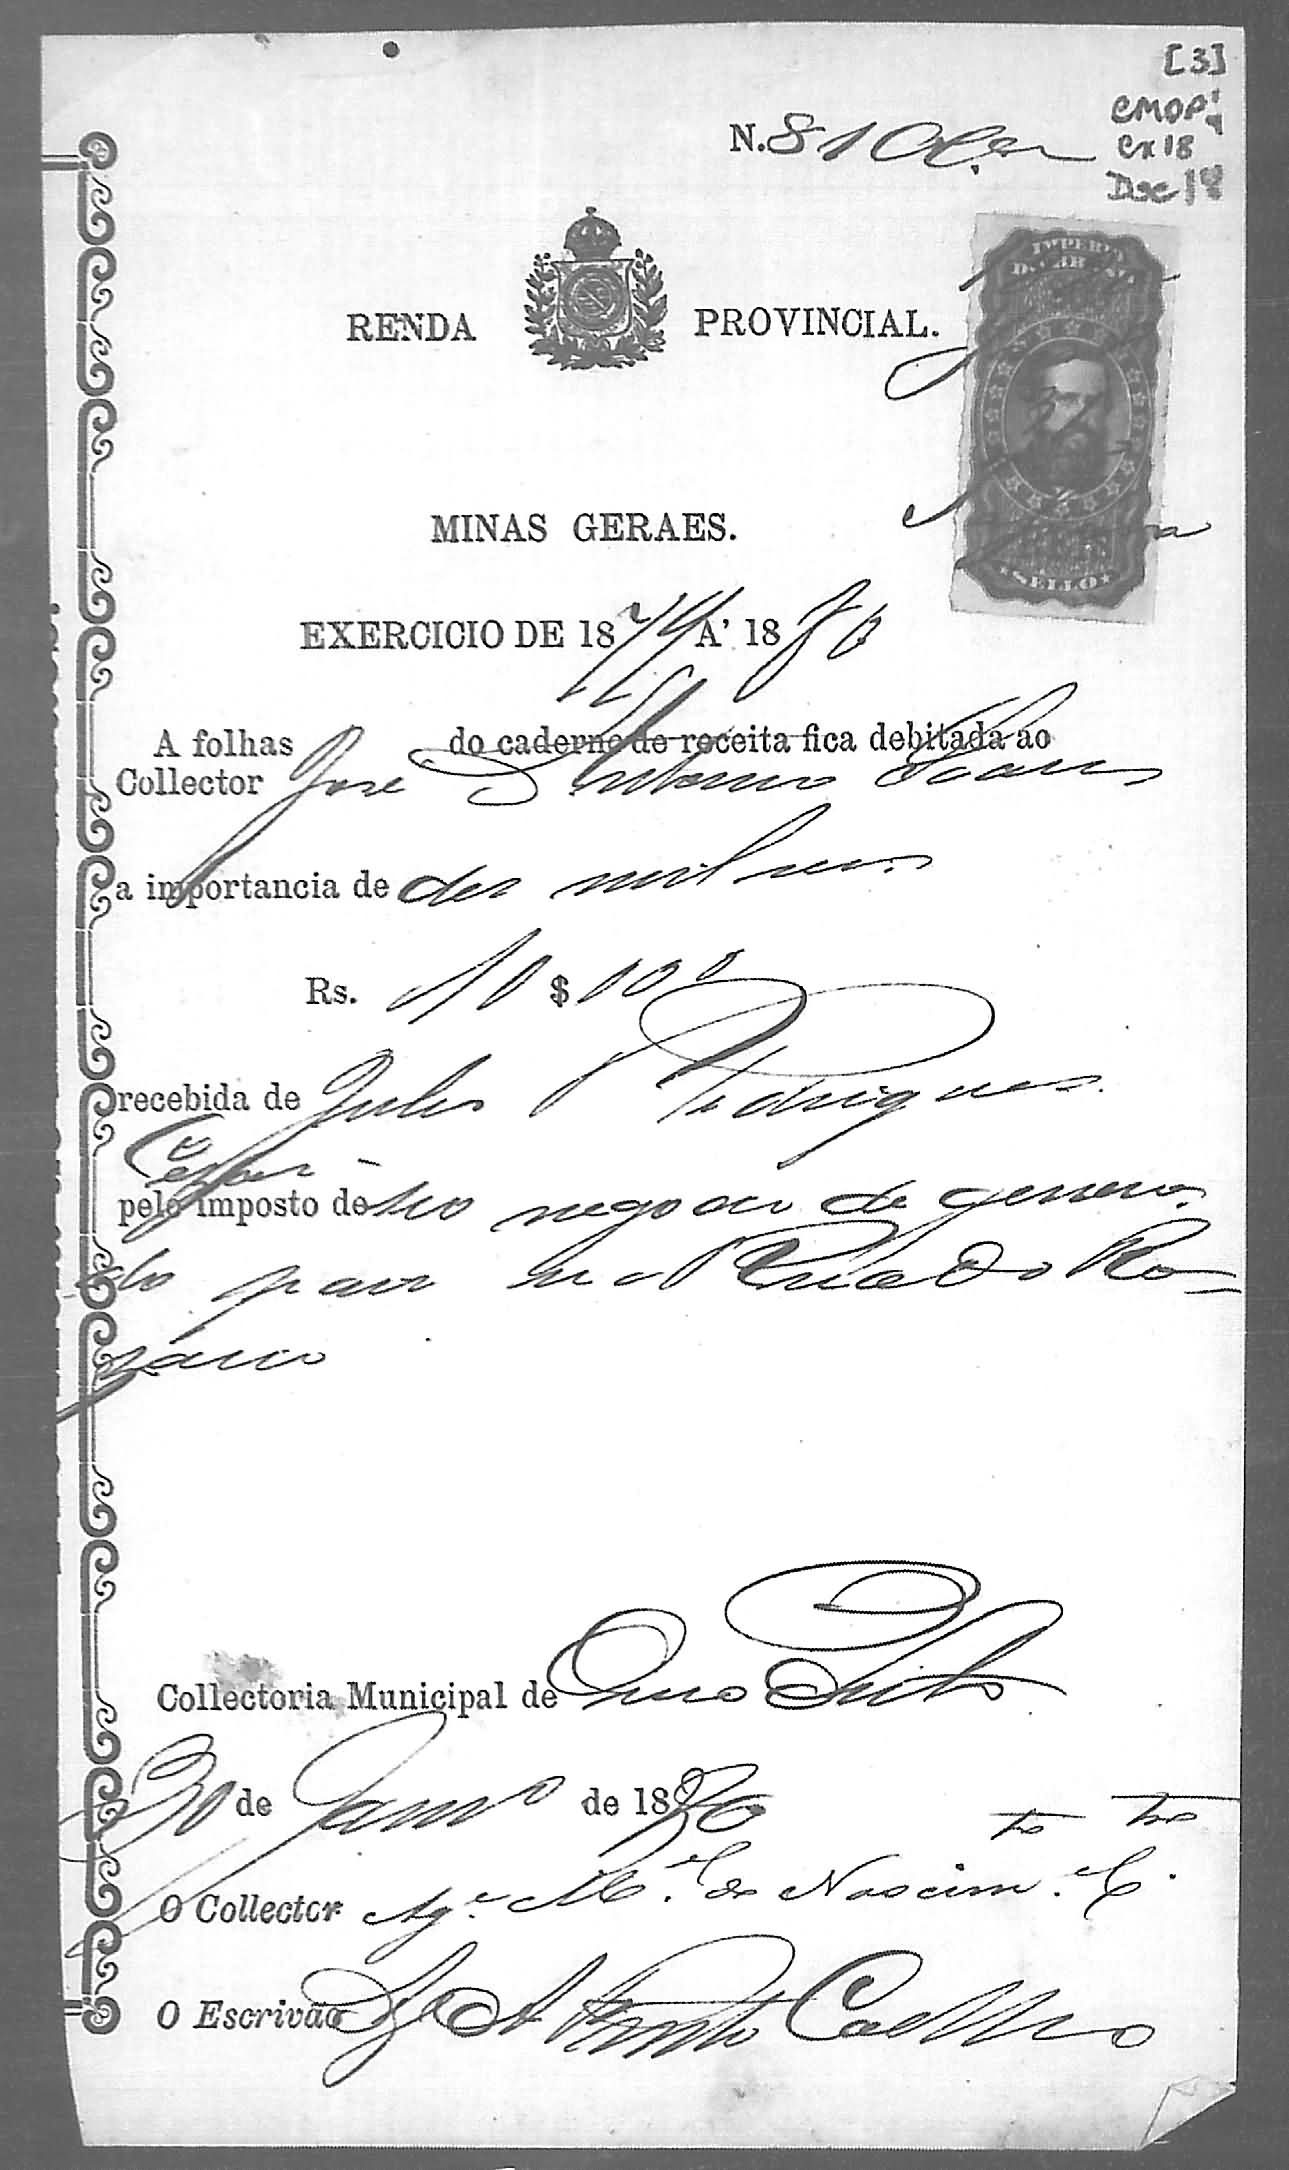 [3]
CMOP
cx 18
Doc 18
N. 810
IMPERIO
DO BRASIL
RENDA PROVINCIAL.
REIS
SELLO
MINAS GERAES.
EXERCICIO DE 1879 A' 1880
A folhas do caderno de receita fica debitada ao
Collector José Antonio Soares
a importancia de des mil reis
Rs. 10 $ 000
recebida de Julio Rodrigues
pelo imposto de seo negocio de generos
do pais na Rua do Ro=
sario
Collectoria Municipal de Ouro Preto
30 de Janrº de 1880
O Collector Mel. do Nascimto
O Escrivão Coelho